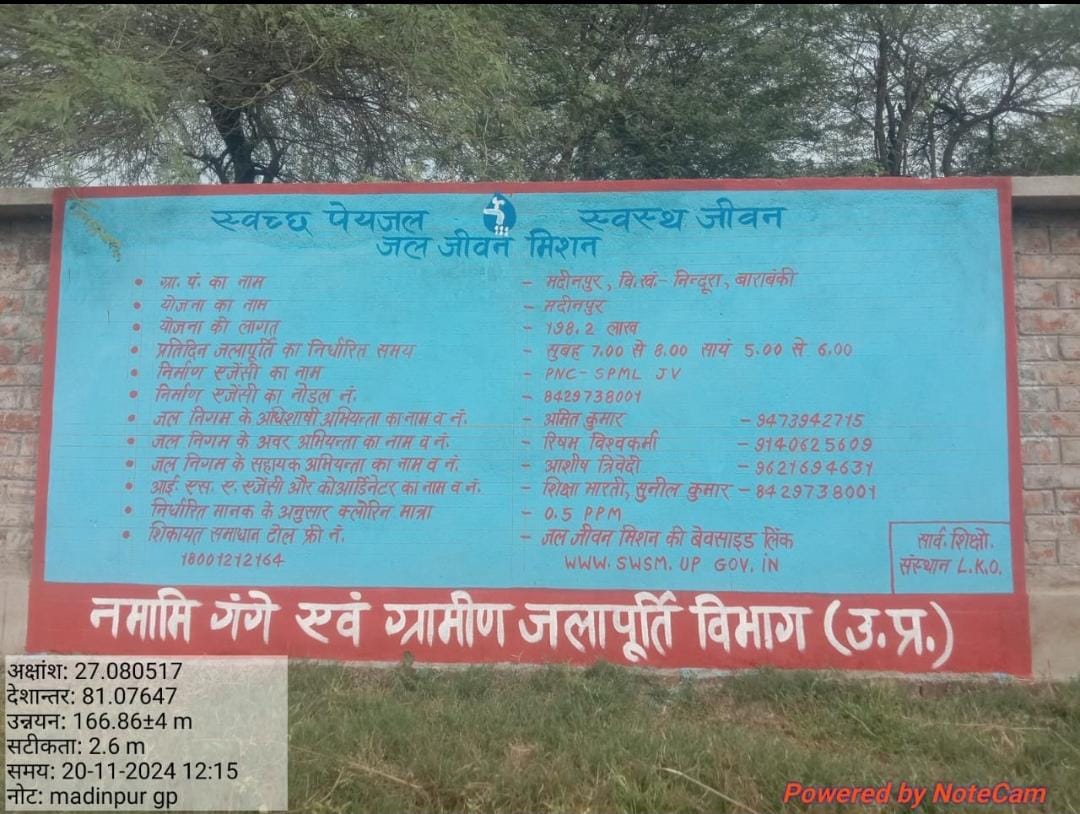 स्वच्छ पेयजल स्वस्थ जीवन
जल जीवन मिशन
• ग्रा. पं. का नाम - मदीनपुर, वि.खं.- निन्दूरा, बाराबंकी
• योजना का नाम - मदीनपुर
• योजना की लागत - 198.2 लाख
• प्रतिदिन जलापूर्ति का निर्धारित समय - सुबह 7.00 से 8.00 सायं 5.00 से 6.00
• निर्माण एजेंसी का नाम - PNC- SPML JV
• निर्माण एजेंसी का नोडल नं. - 8429738001
• जल निगम के अधिशाषी अभियन्ता का नाम व नं. - अमित कुमार - 9473942715
• जल निगम के अवर अभियन्ता का नाम व नं. - रिषभ विश्वकर्मा - 9140625609
• जल निगम के सहायक अभियन्ता का नाम व नं. - आशीष त्रिवेदी - 9621694631
• आई. एस. ए. एजेंसी और कोआर्डिनेटर का नाम व नं. - शिक्षा भारती, सुनील कुमार - 8429738001
• निर्धारित मानक के अनुसार क्लोरिन मात्रा - 0.5 PPM
• शिकायत समाधान टोल फ्री नं. - जल जीवन मिशन की बेवसाइड लिंक
18001212164 WWW. SWSM. UP GOV. IN
सार्व. शिक्षो.
संस्थान L.K.O.
नमामि गंगे एवं ग्रामीण जलापूर्ति विभाग (उ.प्र.)
अक्षांश: 27.080517
देशान्तर: 81.07647
उन्नयन: 166.86±4 m
सटीकता: 2.6 m
समय: 20-11-2024 12:15
नोट: madinpur gp
Powered by NoteCam